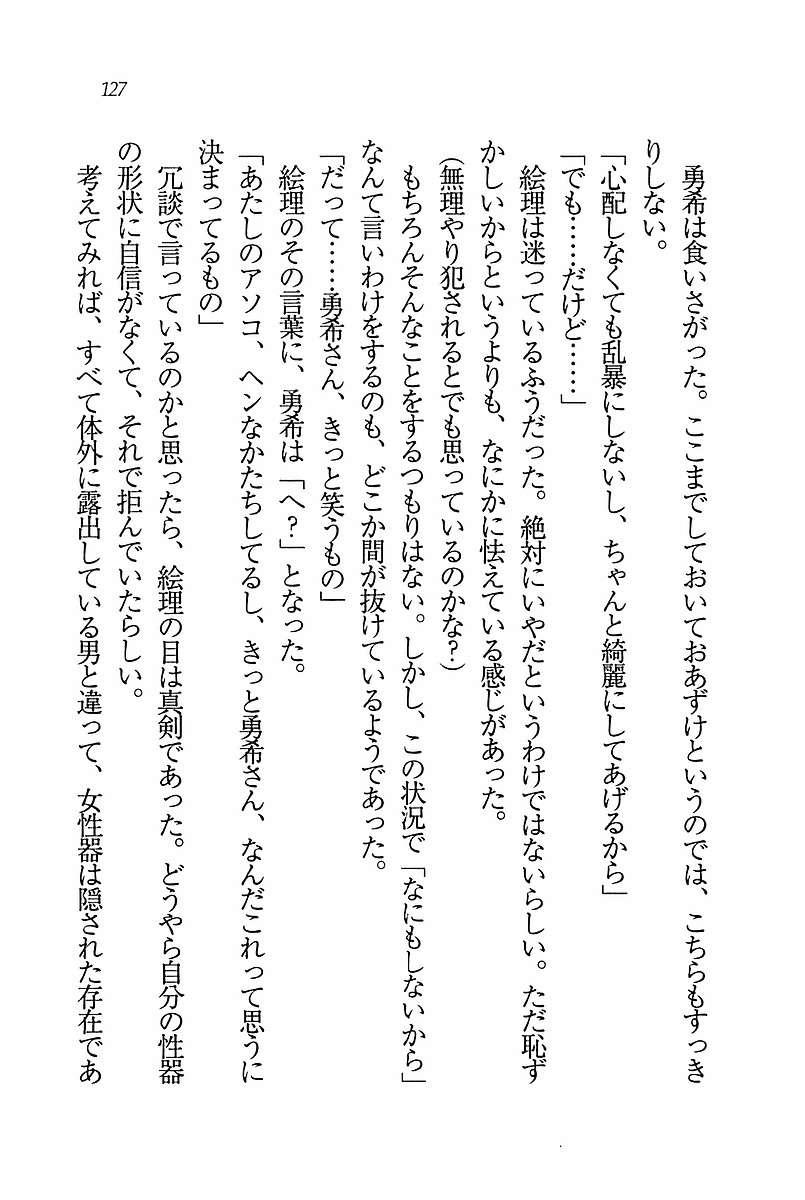 127
勇希は食いさがった。ここまでしておいておあずけというのでは、こちらもすっき
りしない。
「心配しなくても乱暴にしないし、ちゃんと綺麗にしてあげるから」
「でも……だけど……」
絵理は迷っているふうだった。絶対にいやだというわけではないらしい。ただ恥ず
かしいからというよりも、なにかに怯えている感じがあった。
（無理やり犯されるとでも思っているのかな？）
もちろんそんなことをするつもりはない。しかし、この状況で「なにもしないから」
なんて言いわけをするのも、どこか間が抜けているようであった。
「だって……勇希さん、きっと笑うもの」
絵理のその言葉に、勇希は「へ？」となった。
「あたしのアソコ、ヘンなかたちしてるし、きっと勇希さん、なんだこれって思うに
決まってるもの」
冗談で言っているのかと思ったら、絵理の目は真剣であった。どうやら自分の性器
の形状に自信がなくて、それで拒んでいたらしい。
考えてみれば、すべて体外に露出している男と違って、女性器は隠された存在であ